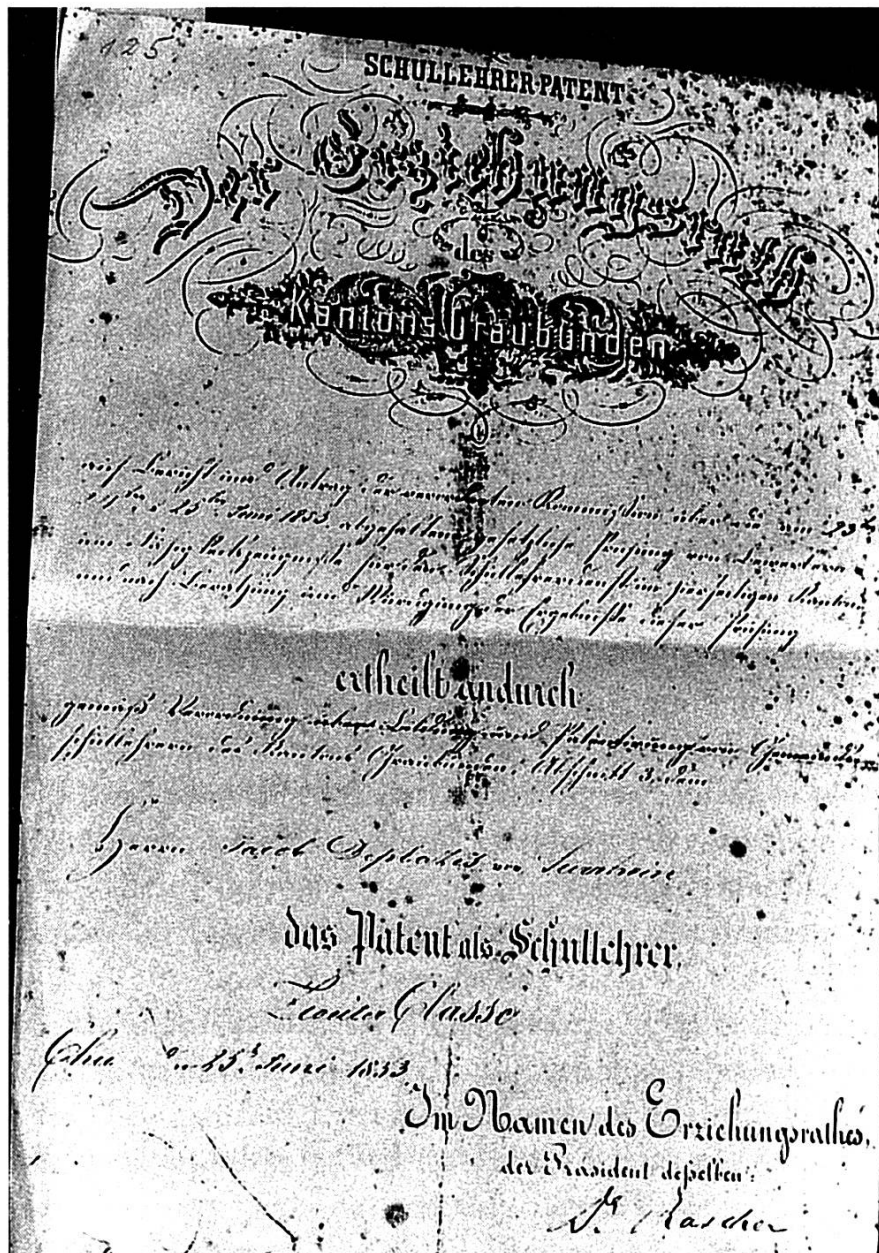 125
SCHULLEHRER-PATENT
Der Erziehungsrath
des
Kantons Graubünden
nach Bericht und Antrag der Kommission über die am 23ten
24ten & 25ten Juni 1853 abgehaltene gesetzliche Prüfung von Bewerbern
um Fähigkeitszeugnisse für den Schullehrerdienst im hierseitigen Kanton
und nach Berathung und Würdigung der Ergebnisse dieser Prüfung
ertheilt andurch
gemäß Verordnung über Bildung und Patentirung von Gemeinds-
schullehrern des Kantons Graubünden, Abschnitt 3, dem
Herrn Jacob Deplazes von Surrhein
das Patent als Schullehrer.
Zweiter Classe
Chur den 25t. Juni 1853
Im Namen des Erziehungsrathes,
der Präsident deßelben:
Dr. Rascher